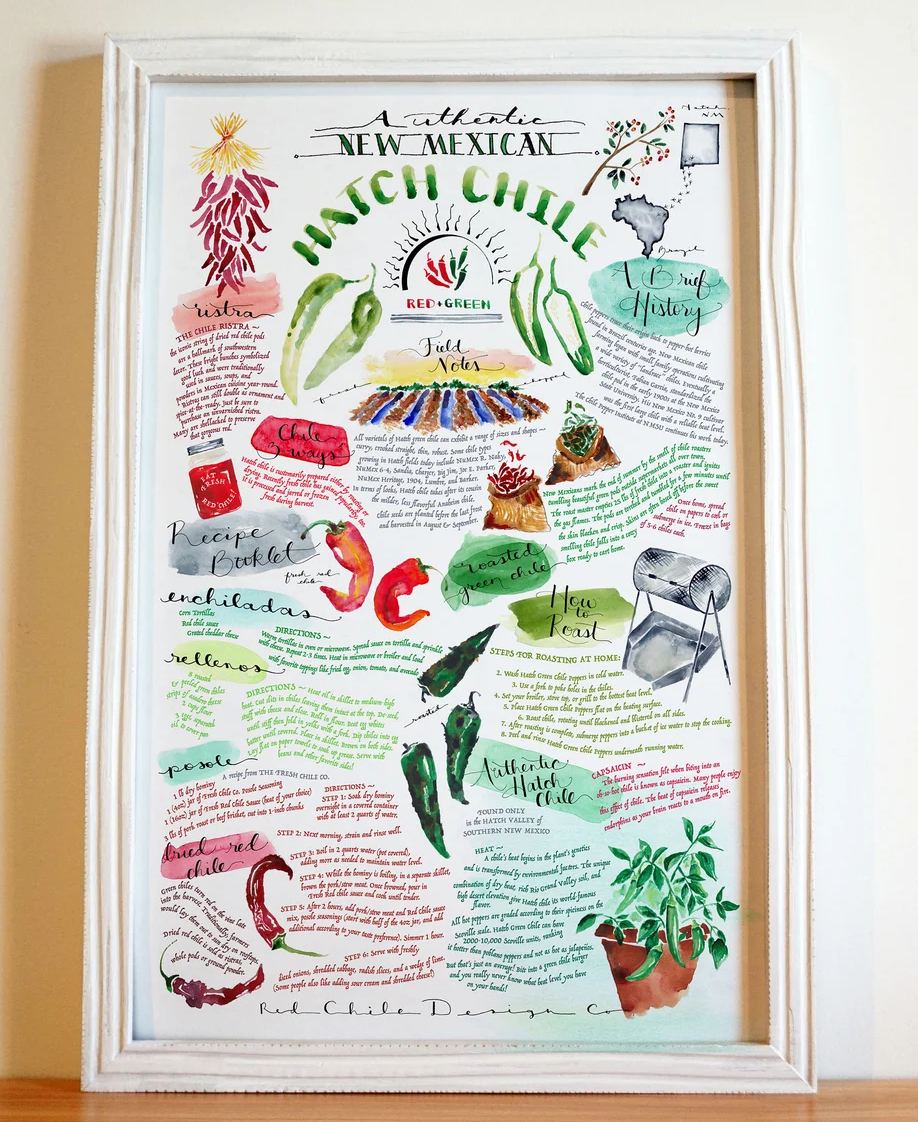 Authentic
NEW MEXICAN
HATCH CHILE
RED + GREEN
Hatch,
NM
Brazil
ristra
THE CHILE RISTRA ~
the iconic string of dried red chile pods
are a hallmark of southwestern
later. These bright bunches symbolized
good luck and were traditionally
used in sauces, soups, and
powders in Mexican cuisine year-round.
Ristras can still double as ornament and
spice-at-the-ready. Just be sure to
purchase an unvarnished ristra.
Many are shellacked to preserve
that gorgeous red.
A Brief
History
chile peppers trace their origin back to pepper-hot berries
found in Brazil centuries ago. New Mexican chile
farming began with small family operations cultivating
a wide variety of "landrace" chiles. Eventually a
horticulturist, Fabian Garcia, standardized the
chile pod in the early 1900s at the New Mexico
State University. His New Mexico No. 9 cultivar
was the first large chile with a reliable heat level.
The chile Pepper Institute at NMSU continues his work today.
Field
Notes
All varietals of Hatch green chile can exhibit a range of sizes and shapes ~
curvy, crooked, straight, thin, robust. Some chile types
growing in Hatch fields today include NuMex R. Naky,
NuMex 6-4, Sandia, Charger, Big Jim, Joe E. Parker,
NuMex Heritage, 1904, Lumbre, and Barker.
In terms of looks, Hatch chile takes after its cousin
the milder, less flavorful Anaheim chile.
chile seeds are planted before the last frost
and harvested in August & September.
Chile
3 ways
Hatch chile is customarily prepared either by roasting or
drying. Recently fresh chile has gained popularity, too.
It is processed and jarred or frozen
fresh during harvest.
EAT
FRESH
RED CHILE!
New Mexicans mark the end of summer by the smell of chile roasters
tumbling beautiful green pods outside supermarkets all over town.
The roast master empties 25 lbs of fresh chile into a roaster and ignites
the gas flames. The pods are torched and tumbled for a few minutes until
the skin blackens and crisp. Skins are often
smelling chile falls into a cozy
box ready to cart home.
Once home, spread
chile on papers to cool or
submerge in ice. Freeze in bags
of 5-6 chiles each.
Recipe
Booklet
fresh red
chile
roasted
green chile
How
to
Roast
STEPS FOR ROASTING AT HOME:
2. Wash Hatch Green Chile Peppers in cold water.
3. Use a fork to poke holes in the chiles.
4. Set your broiler, stove top, or grill to the hottest heat level.
5. Place Hatch Green Chile Peppers flat on the heating surface.
6. Roast chile, rotating until blackened and blistered on all sides.
7. After roasting is complete, submerge peppers into a bucket of ice water to stop the cooking.
8. Peel and rinse Hatch Green Chile Peppers underneath running water.
enchiladas
Corn Tortillas
Red chile sauce
Grated cheddar cheese
DIRECTIONS ~
Warm tortillas in oven or microwave. Spread sauce on tortilla and sprinkle
with cheese. Repeat 2-3 times. Heat in microwave or broiler and load
with favorite toppings like fried egg, onion, tomato, and avocado
rellenos
8 roasted
& peeled green chiles
strips of monterey cheese
2 cups flour
3 eggs, separated
oil to cover pan
DIRECTIONS ~ Heat oil in skillet to medium high
heat. Cut slits in chiles leaving them intact at the top. De-seed,
stuff with cheese and close. Roll in flour. Beat egg whites
until stiff then fold in yolks with a fork. Dip chiles into egg
batter until covered. Place in skillet. Brown on both sides.
Lay flat on paper towels to soak up grease. Serve with
beans and other favorite sides!
roasted
posole
A recipe from THE FRESH CHILE CO.
1 lb dry hominy
1 (4oz) jar of Fresh Chile Co. Posole Seasoning
1 (16oz) jar of Fresh Red Chile Sauce (heat of your choice)
3 lbs of pork roast or beef brisket, cut into 1-inch chunks
DIRECTIONS ~
STEP 1: Soak dry hominy
overnight in a covered container
with at least 2 quarts of water.
STEP 2: Next morning, strain and rinse well.
STEP 3: Boil in 2 quarts water (pot covered),
adding more as needed to maintain water level.
STEP 4: While the hominy is boiling, in a separate skillet,
brown the pork/stew meat. Once browned, pour in
Fresh Red Chile sauce and cook until tender.
STEP 5: After 2 hours, add pork/stew meat and Red Chile sauce
mix, posole seasonings (start with half of the 4oz jar, and add
additional according to your taste preference). Simmer 1 hour.
STEP 6: Serve with freshly
diced onions, shredded cabbage, radish slices, and a wedge of lime.
(Some people also like adding sour cream and shredded cheese!)
dried red
chile
Green chiles turn red on the vine late
into the harvest. Traditionally, farmers
would lay them out to sun dry on rooftops.
Dried red chile is sold as ristras,
whole pods or ground powder.
Authentic
Hatch
Chile
FOUND ONLY
in the HATCH VALLEY of
SOUTHERN NEW MEXICO
CAPSAICIN ~
The burning sensation felt when biting into an
oh-so-hot chile is known as capsaicin. Many people enjoy
this effect of chile. The heat of capsaicin releases
endorphins as your brain reacts to a mouth on fire.
HEAT ~
A chile's heat begins in the plant's genetics
and is transformed by environmental factors. The unique
combination of dry heat, rich Rio Grand Valley soil, and
high desert elevation give Hatch chile its world-famous
flavor.
All hot peppers are graded according to their spiciness on the
Scoville scale. Hatch Green Chile can have
2000-10,000 Scoville units, ranking
it hotter than poblano peppers and not as hot as jalapeños.
But that's just an average! Bite into a green chile burger
and you really never know what heat level you have
on your hands!
Red Chile Design Co